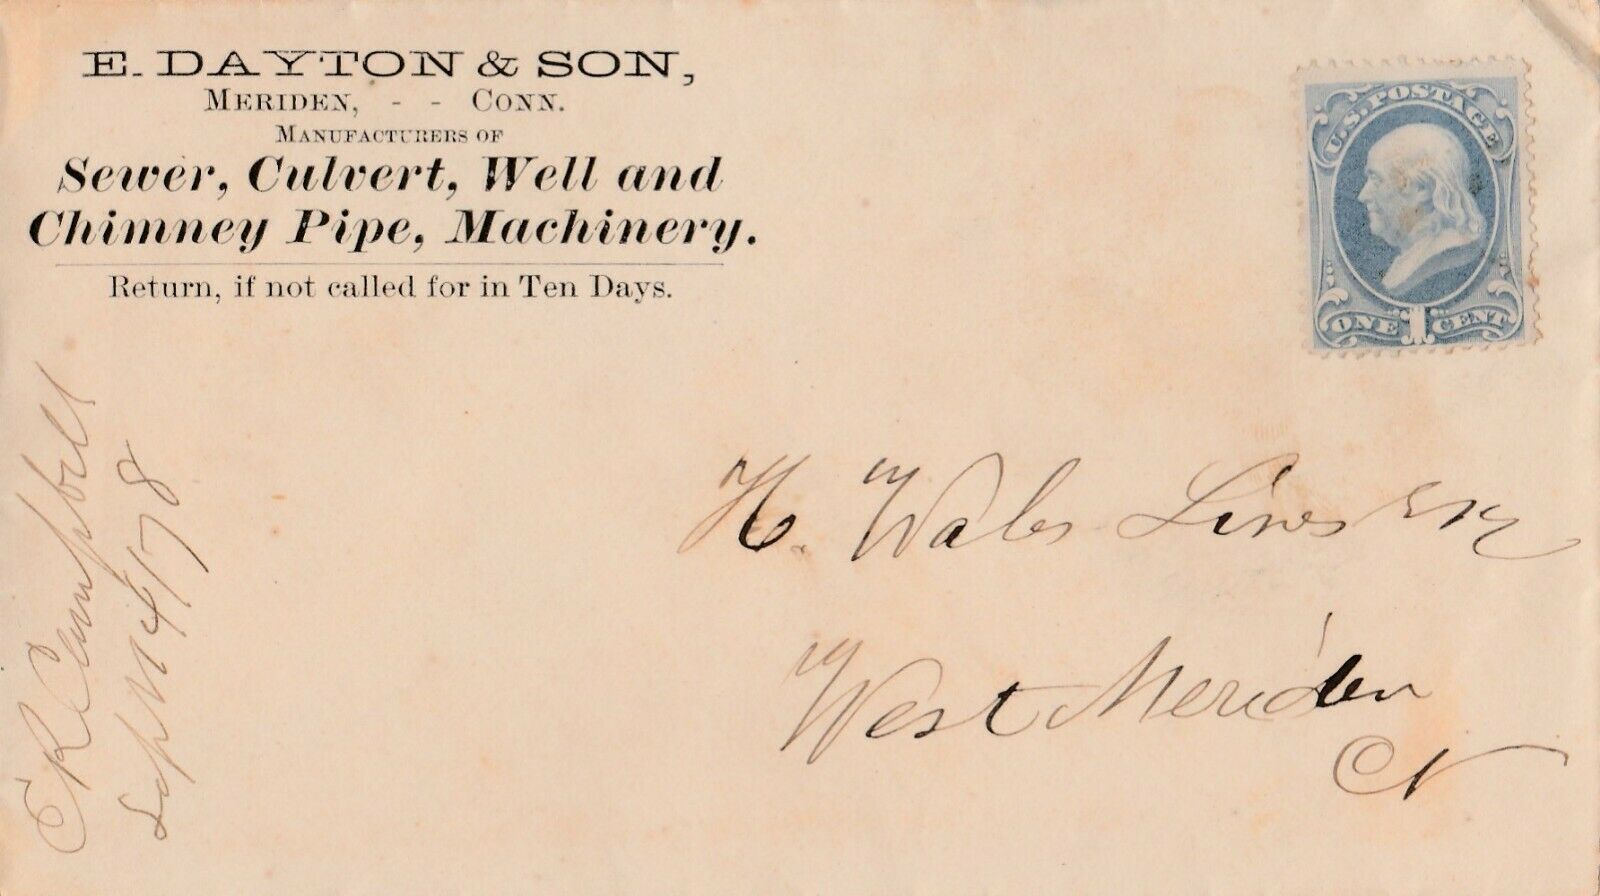 E. DAYTON & SON,
MERIDEN, - - CONN.
MANUFACTURERS OF
Sewer, Culvert, Well and
Chimney Pipe, Machinery.
Return, if not called for in Ten Days.
U.S. POSTAGE
ONE 1 CENT
H. Wales Lines Esq
West Meriden
Ct
Campbell
Sept 4/78